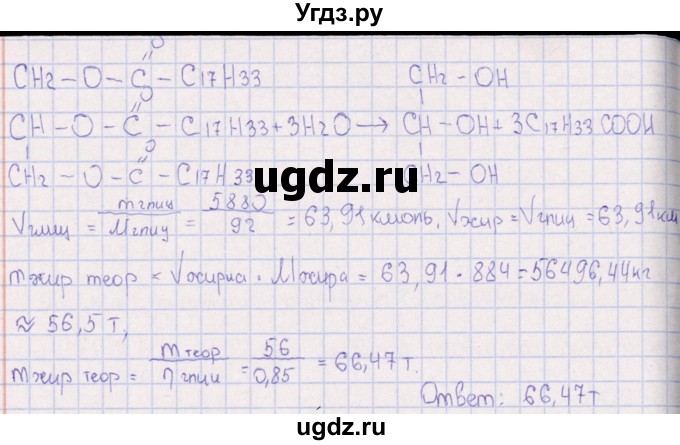 Угдз.ру
O
CH2 – O – C – C17H33 CH2 – OH
O
CH – O – C – C17H33 + 3H2O → CH – OH + 3C17H33COOH
O
CH2 – O – C – C17H33 CH2 – OH
ugdz.ru
Vглиц = mглиц / Mглиц = 5880 / 92 = 63,91 кмоль. Vжир = Vглиц = 63,91 км
mжир теор = Vжира · Mжира = 63,91 · 884 = 56496,44 кг
≈ 56,5 т,
mжир теор = mтеор / η глиц = 56 / 0,85 = 66,47 т.
Ответ: 66,47 т
ugdz.ru